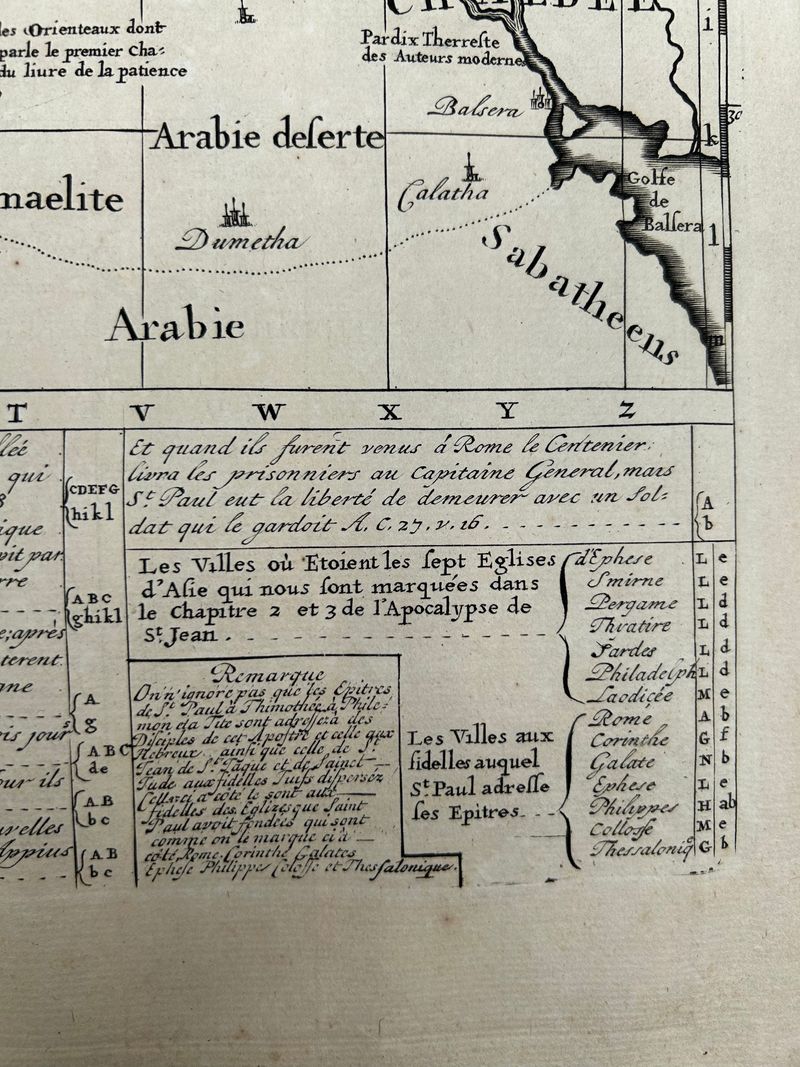 les Orienteaux dont
parle le premier Cha⸗
du liure de la patience
CHALDEE
Pardix Therreste
des Auteurs modernes
i
30
Balsera
Arabie deserte
k
maelite
Calatha
Golfe
de
Balsera
l
Dumetha
Sabatheens
Arabie
m
T V W X Y Z
lleé
qui
CDEFG
hikl
ique
oit par
rre
A B C
ghikl
e; aprés
terent
gne
A
g
is jour
A B C
de
our ils
A B
b c
urelles
Appius
A B
b c
Et quand ils furent venus à Rome le Centenier
livra les prisonniers au Capitaine General, mais
St. Paul eut la liberté de demeurer avec un Sol⸗
dat qui le gardoit A. C. 27. v. 16.
A
b
Les Villes où Etoient les sept Eglises
d'Asie qui nous sont marquées dans
le Chapitre 2 et 3 de l'Apocalypse de
St. Jean.
d'Ephese L e
Smirne L e
Pergame L d
Thiatire L d
Sardes L d
Philadelph L d
Laodicée M e
Remarque
On n'ignore pas que les Epitres
de St. Paul à Thimothée, à Phile⸗
mon et à Tite sont adressez à des
Disciples de cet Apostre et celle aux
Hebreux, ainsi que celle de St.
Jean de St. Jaque et de Sainct
Jude aux fidelles Juifs dispersez
Celles ci a coté le sont aux
fidelles des Eglizes que Saint
Paul avoit fondées qui sont
comme on le marque ci à
coté Rome, Corinthe Galates
Ephese Philippes Colosse et Thessalonique.
Les Villes aux
fidelles auquel
St. Paul adresse
ses Epitres
Rome A b
Corinthe G f
Galate N b
Ephese L e
Philippes H ab
Collosse M e
Thessaloniq G b